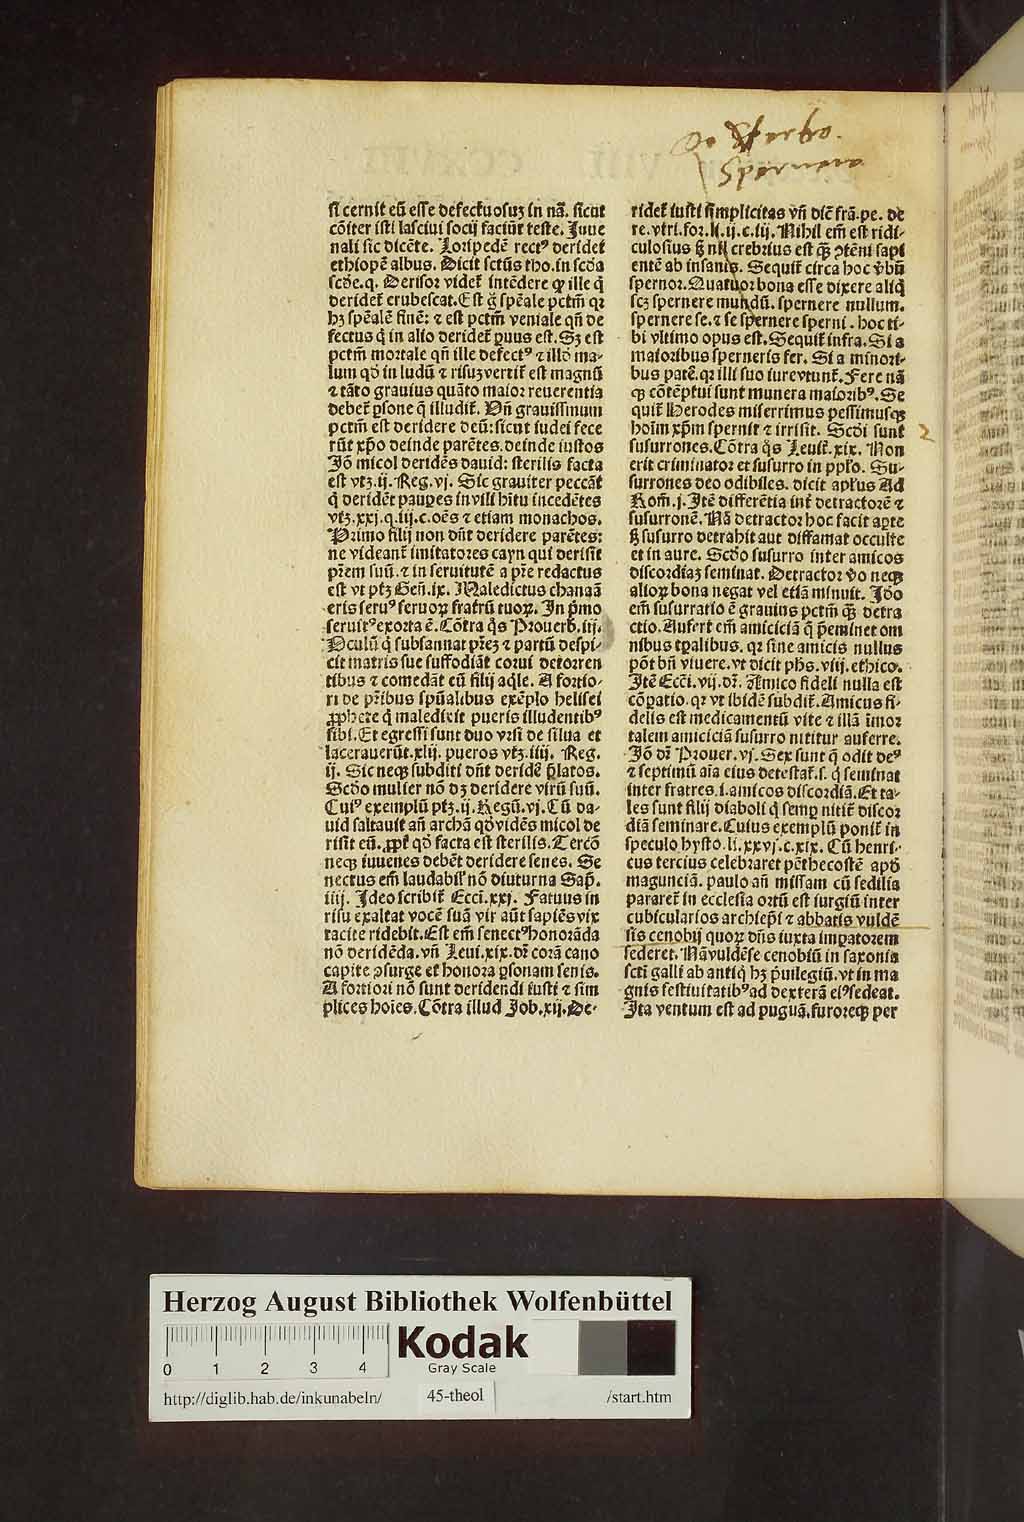 si cernit eū esse defectuosuꝫ in nā. sicut
cōiter isti lasciui socij faciūt teste. Juue
nali sic dicēte. Loripedē rectꝰ derideꝫ
ethiopē albus. Dicit sctūs tho. in scđa
scđe. q. Derisor videt̄ intēdere ꝙ ille q̄
deridet̄ erubescat. Est g̊ spēale pctm̄ qꝛ
hꝫ spēalē finē: ⁊ est pctm̄ veniale qn̄ de
fectus q̄ in alio deridet̄ ꝑuus est. Sꝫ est
pctm̄ mortale qn̄ ille defectꝰ ⁊ illđ ma-
lum qđ in ludū ⁊ risuꝫ vertit̄ est magnū
⁊ tāto grauius quāto maior reuerentia
debet̄ ꝑsone q̄ illudit̄. Vn̄ grauissimum
pctm̄ est deridere deū: sicut iudei fece
rūt xp̄o deinde parētes. deinde iustos
Jō micol deridēs dauid: sterilis facta
est vtꝫ .ij. Reg. vj. Sic grauiter peccāt
q̄ deridēt pauꝑes in vili hītu incedētes
vtꝫ .xxj. q. iij. c. oēs ⁊ etiam monachos.
Primo filij non dn̄t deridere parētes:
ne videant̄ imitatores cayn qui derisit
pr̄em suū. ⁊ in seruitutē a pr̄e redactus
est vt ptꝫ Geñ. ix. Maledictus chanaā
eris seruꝰ seruoꝝ fratrū tuoꝝ. In p̄mo
seruitꝰ exorta ē. Cōtra q̄s Prouerb. iij.
Oculū q̄ subsannat pr̄eꝫ ⁊ partū despi-
cit matris sue suffodiāt corui detorren
tibus ⁊ comedāt eū filij aq̄le. A fortio-
ri de pr̄ibus spūalibus exēplo helisei
ꝓphete q̄ maledixit pueris illudentibꝰ
sibi. Et egressi sunt duo vrsi de silua et
lacerauerūt .xlij. pueros vtꝫ .iiij. Reg.
ij. Sic neqꝫ subditi dn̄t deridē p̄latos.
Scđo mulier nō dꝫ deridere virū suū.
Cuiꝰ exemplū ptꝫ .ij. Regū. vj. Cū da-
uid saltauit añ archā qđ vidēs micol de
risit eū. ꝓpt̄ qđ facta est sterilis. Tercō
neqꝫ iuuenes debēt deridere senes. Se
nectus em̄ laudabil̄ nō diuturna Sap̄.
iiij. Ideo scribit̄ Ecci̅. xxj. Fatuus in
risu exaltat vocē suā vir aūt sapiēs vix
tacite ridebit. Est em̄ senectꝰ honorāda
nō deridēda. vn̄ Leui. xix. dr̄ corā cano
capite ꝯsurge et honora ꝑsonam senis.
A fortiori nō sunt deridendi iusti ⁊ sim
plices hoīes. Cōtra illud Job. xij. De-
ridet̄ iusti simplicitas vn̄ dic̄ frā. pe. de
re. vtri. for. li. ij. c. iij. Nihil em̄ est ridi-
culosius sꝫ nil crebrius est qꝫ ꝯtēni sapi
entē ab insanis. Sequit̄ circa hoc v̄bū
spernor. Quatuor bona esse dixere aliq̄
scꝫ spernere mundū. spernere nullum.
spernere se. ⁊ se spernere sperni. hoc ti-
bi vltimo opus est. Sequit̄ infra. Si a
maioribus sperneris fer. Si a minori-
bus patē. qꝛ illi suo iure vtunt̄. Fere nā
qꝫ cōtēptui sunt munera maioribꝰ. Se
quit̄ Herodes miserrimus pessimusqꝫ
hoīm xp̄m spernit ⁊ irrisit. Scđi sunt
susurrones. Cōtra q̄s Leuit̄. xix. Non
erit criminator et susurro in ppl̄o. Su-
surrones deo odibiles. dicit apl̄us Ad
Rom̄. j. Itē differētia int̄ detractorē ⁊
susurronē. Nā detractor hoc facit aꝑte
sꝫ susurro detrahit aut diffamat occulte
et in aure. Scđo susurro inter amicos
discordiaꝫ seminat. Detractor v̄o neqꝫ
alioꝝ bona negat vel etiā minuit. Idō
em̄ susurratio ē grauius pctm̄ qꝫ detra
ctio. Aufert em̄ amiciciā q̄ p̄eminet om
nibus tꝑalibus. qꝛ sine amicis nullus
pōt bn̄ viuere. vt dicit ph̄s. viij. ethico.
Itē Ecci̅. vij. dr̄. Amico fideli nulla est
cōꝑatio. qꝛ vt ibidē subdit̄. Amicus fi-
delis est medicamentū vite ⁊ illā īmor
talem amiciciā susurro nititur auferre.
Jō dr̄ Prouer. vj. Sex sunt q̄ odit deꝰ
⁊ septimū aīa eius detestat̄. s. q̄ seminat
inter fratres. i. amicos discordiā. Et ta-
les sunt filij diaboli q̄ semꝑ nitit̄ discor
diā seminare. Cuius exemplū ponit̄ in
speculo hysto. li. xxvj. c. xix. Cū henri-
cus tercius celebraret pēthecostē apđ
magunciā. paulo añ missam cū sedilia
pararet̄ in ecclesia ortū est iurgiū inter
cubicularios archiep̄i ⁊ abbatis vuldē
sis cenobij quoꝝ dn̄s iuxta imꝑatorem
sederet. Nā vuldēse cenobiū in saxonia
scti galli ab antiq̄ hꝫ p̄uilegiū. vt in ma
gnis festiuitatibꝰ ad dexterā eiꝰ sedeat.
Ita ventum est ad pugnā. furoreqꝫ per
2
Herzog August Bibliothek Wolfenbüttel
0 1 2 3 4
Kodak
Gray Scale
http://diglib.hab.de/inkunabeln/ 45-theol /start.htm